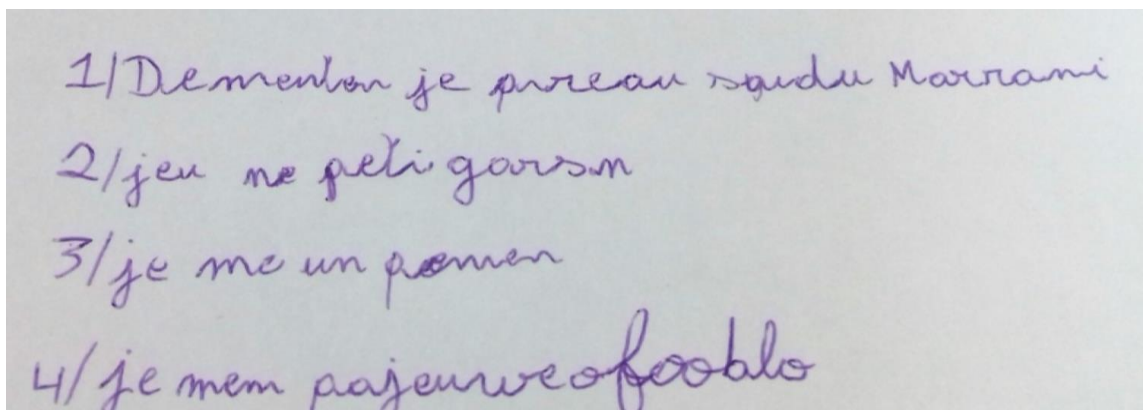 1/ Dementon je preau saudu Marrami
2/ jeu ne peti garson
3/ je me un pomen
4/ je mem pajeuwe ofooblo